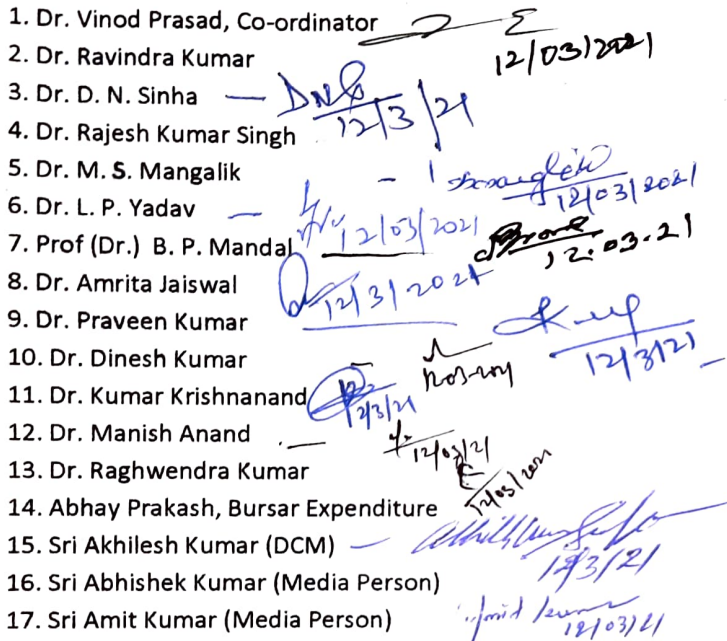 1. Dr. Vinod Prasad, Co-ordinator
12/03/2021
2. Dr. Ravindra Kumar
3. Dr. D. N. Sinha —
12/3/21
4. Dr. Rajesh Kumar Singh
5. Dr. M. S. Mangalik —
12/03/2021
6. Dr. L. P. Yadav —
12/03/2021
7. Prof (Dr.) B. P. Mandal
12.03.21
8. Dr. Amrita Jaiswal
12/3/2021
9. Dr. Praveen Kumar
12/3/21
10. Dr. Dinesh Kumar
11. Dr. Kumar Krishnanand
12/3/21
12. Dr. Manish Anand
12/03/21
13. Dr. Raghwendra Kumar
12/03/2021
14. Abhay Prakash, Bursar Expenditure
15. Sri Akhilesh Kumar (DCM) —
12/3/21
16. Sri Abhishek Kumar (Media Person)
17. Sri Amit Kumar (Media Person)
Amit Kumar
12/03/21